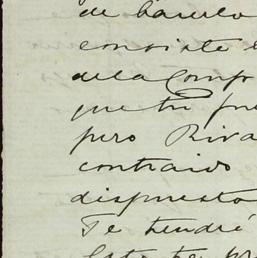 de
consiste
de la Comp
que tu fue
pero Riva
contraido
dispuesto
Te tendré